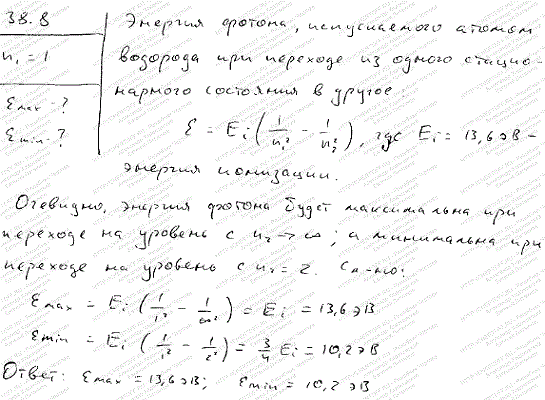 38.8
n₁ = 1
εmax - ?
εmin - ?
Энергия фотона, испускаемого атомом
водорода при переходе из одного стацио-
нарного состояния в другое:
ε = Eᵢ (1/n₁² - 1/n₂²), где Eᵢ = 13,6 эВ -
энергия ионизации.
Очевидно, энергия фотона будет максимальна при
переходе на уровень с n₂ → ∞; а минимальна при
переходе на уровень с n₂ = 2. Сл-но:
εmax = Eᵢ (1/1² - 1/∞²) = Eᵢ = 13,6 эВ
εmin = Eᵢ (1/1² - 1/2²) = 3/4 Eᵢ = 10,2 эВ
Ответ: εmax = 13,6 эВ; εmin = 10,2 эВ